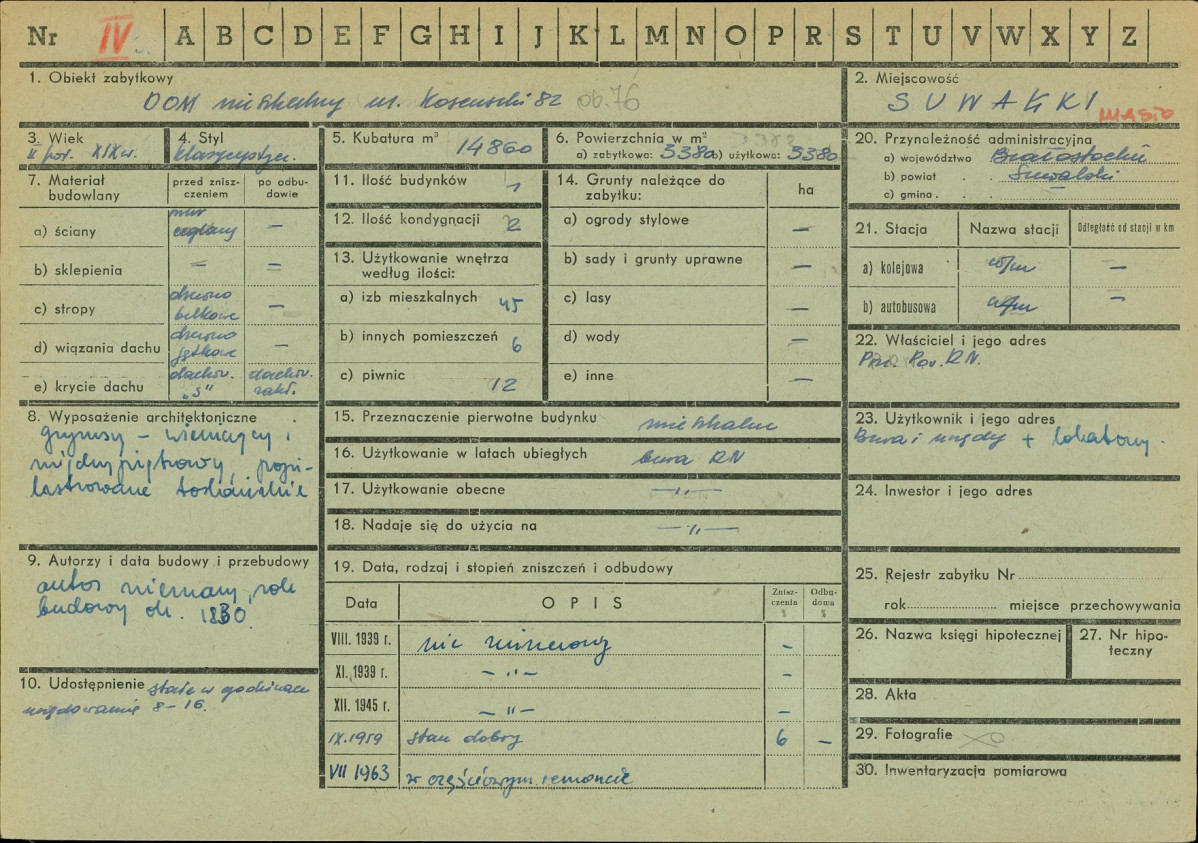 Nr IV A B C D E F G H I J K L M N O P R S T U V W X Y Z
1. Obiekt zabytkowy
DOM mieszkalny ul. Kościuszki 82 ob. 76
2. Miejscowość
SUWAŁKI
MIASTO
3. Wiek
II poł. XIX w.
4. Styl
klasycystycz.
5. Kubatura m³ 14860
6. Powierzchnia w m²
a) zabytkowa: 3380 b) użytkowa: 3380
20. Przynależność administracyjna
a) województwo Białostockie
b) powiat . . Suwalski
c) gmina . . .
7. Materiał budowlany
przed zniszczeniem
po odbudowie
a) ściany mur ceglany —
b) sklepienia — =
c) stropy drewno belkowe —
d) wiązania dachu drewno jętkowe —
e) krycie dachu dachów. "S" dachów. zakł.
11. Ilość budynków 1
12. Ilość kondygnacji 2
13. Użytkowanie wnętrza według ilości:
a) izb mieszkalnych 45
b) innych pomieszczeń 6
c) piwnic 12
14. Grunty należące do zabytku:
ha
a) ogrody stylowe —
b) sady i grunty uprawne —
c) lasy —
d) wody —
e) inne —
21. Stacja
Nazwa stacji
Odległość od stacji w km
a) kolejowa w/m —
b) autobusowa w/m —
22. Właściciel i jego adres
Prez. Pow. R.N.
8. Wyposażenie architektoniczne
gzymsy – wieńczący i
międzypiętrowy, popi-
lastrowane
15. Przeznaczenie pierwotne budynku mieszkalne
16. Użytkowanie w latach ubiegłych biura RN
17. Użytkowanie obecne —"—
18. Nadaje się do użycia na —"—
23. Użytkownik i jego adres
Biura i urzędy + lokatorzy.
24. Inwestor i jego adres
9. Autorzy i data budowy i przebudowy
autor nieznany, rok
budowy ok. 1830.
10. Udostępnienie stałe w godzinach
urzędowania 8–16.
19. Data, rodzaj i stopień zniszczeń i odbudowy
Data
OPIS
Zniszczenia %
Odbudowa %
VIII. 1939 r. nie zniszczony —
XI. 1939 r. —"— —
XII. 1945 r. —"— —
IX.1959 stan dobry 6 —
VII 1963 w częściowym remoncie
25. Rejestr zabytku Nr
rok miejsce przechowywania
26. Nazwa księgi hipotecznej
27. Nr hipoteczny
28. Akta
29. Fotografie
30. Inwentaryzacja pomiarowa